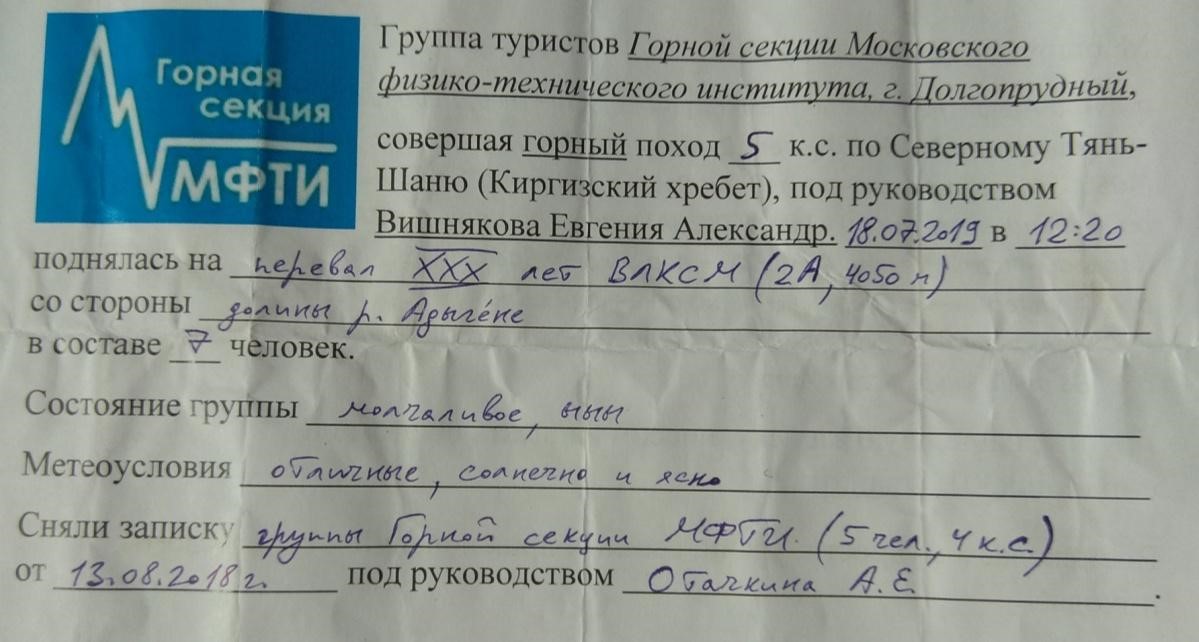 Горная
секция
МФТИ
Группа туристов Горной секции Московского
физико-технического института, г. Долгопрудный,
совершая горный поход 5 к.с. по Северному Тянь-
Шаню (Киргизский хребет), под руководством
Вишнякова Евгения Александр. 18.07.2019 в 12:20
поднялась на перевал XXX лет ВЛКСМ (2А, 4050 м)
со стороны долины р. Адыгéне
в составе 7 человек.
Состояние группы молчаливое, ыыы
Метеоусловия отличные, солнечно и ясно
Сняли записку группы Горной секции МФТИ. (5 чел., 4 к.с.)
от 13.08.2018 г. под руководством Отачкина А.Е.